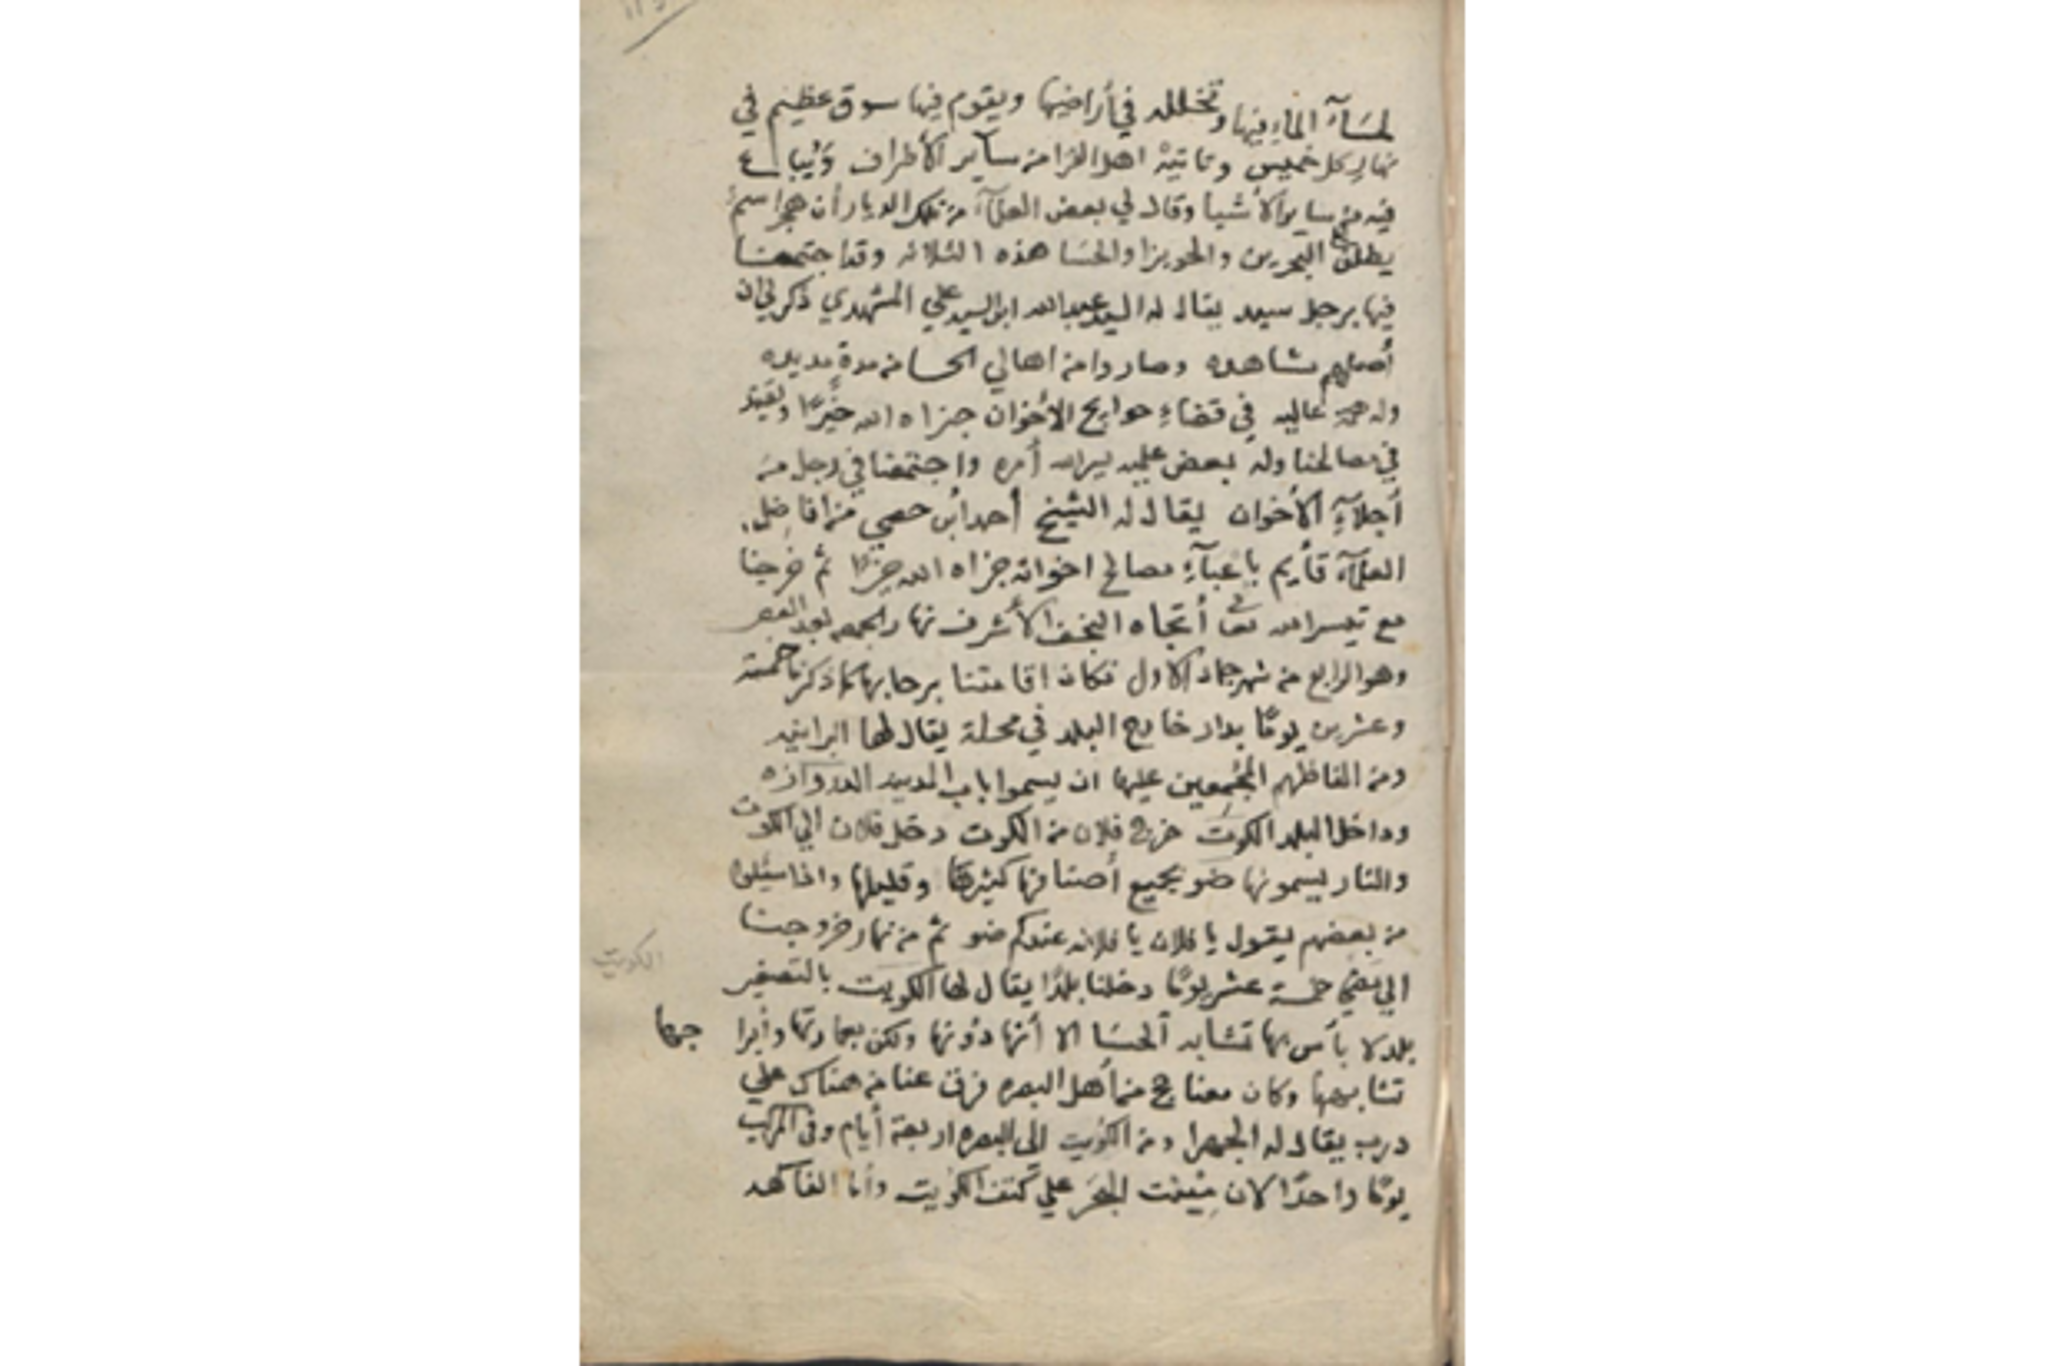 لمسآء الماء فيها وتخلله في أراضيها ويقوم فيها سوق عظيم في
نهار كل خميس وتاتيه اهل القرا من سآير الأطراف ويباع
فيه من ساير الأشيا وقال لي بعض العلمآء من تلك الديار أن هجر اسم
يطلق على البحرين والحويزا والحسا هذه الثلاثه وقد اجتمعنا
فيها برجل سيد يقال له السيد عبدالله ابن السيد علي المشهدي ذكر لي ان
أصلهم مشاهده وصاروا من اهالي الحسا من مدة مديده
وله همه عاليه في قضاء حوايج الأخوان جزاه الله خيرًا وتقيد
في مصالحنا وله بعض علميه يسر الله أمره واجتمعنا في رجل من
أجلآء الأخوان يقال له الشيخ أحمد ابن حصي من افاضل
العلمآء قأيم باعبآء مصالح اخوانه جزاه الله خيرًا ثم خرجنا
مع تيسر الله تعا أتجاه النجف الأشرف نهار الجمعه بعد العصر
وهو الرابع من شهر جماد الاول فكان اقامتنا برحابها كما ذكرنا خمسة
وعشرين يومًا بدار خارج البلد في محلة يقال لها
ومن الفاظهم المجمعين عليها ان يسموا باب المدينه الدروازه
وداخل البلد الكوت خرج فلان من الكوت دخل فلان الي الكوت
والنار يسمونها ضو بجميع أصنافها كثيرها وقليلها واذا سئلوا
من بعضهم يقول يا فلان يا فلانه عندكم ضو ثم من نهار خروجنا
الي مضي خمسة عشر يومًا دخلنا بلدًا يقال لها الكويت بالتصغير
الكويت
بلد لا بأس بها تشابه الحسا الا أنها دونها ولكن بعمارتها وأبرا
جها
تشابهها وكان معنا حج من أهل البصره فرق عنا من هناك علي
درب يقال له الجهرا ومن الكويت الى البصره اربعة أيام وفى المركب
يومًا واحدًا لان مينت البحر علي كتف الكويت وأما الفاكهه